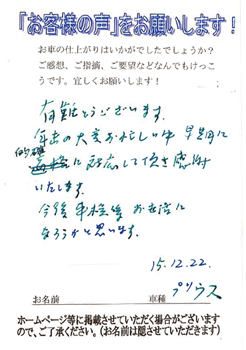 「お客様の声」をお願いします！
お車の仕上がりはいかがでしたでしょうか？
ご感想、ご指摘、ご要望などなんでもけっこ
うです。宜しくお願いします！
有難とうございます。
年末の大変お忙しい中 早急に
的確に対応して頂き感謝
いたします。
今後車検等お世話に
なろうかと思います。
15.12.22.
プリウス
お名前 車種
ホームページ等に掲載させていただく場合がございます
ので、ご了承ください。（お名前は隠させていただきます）